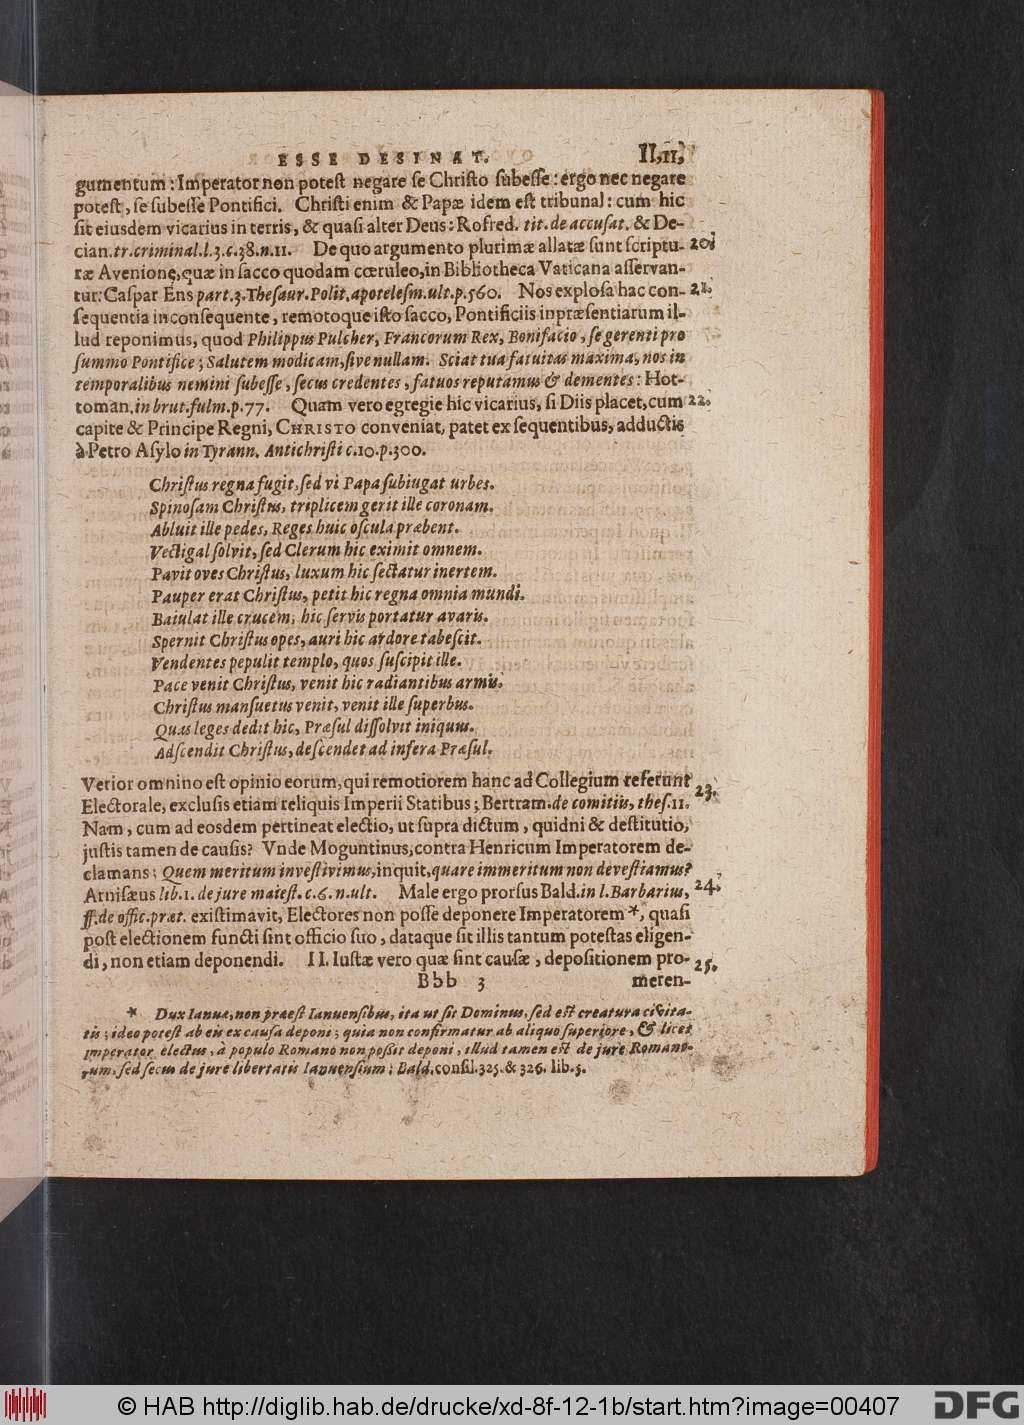 ESSE DESINAT. II, 11,
gumentum: Imperator non potest negare se Christo subesse: ergo nec negare
potest, se subesse Pontifici. Christi enim & Papæ idem est tribunal: cum hic
sit eiusdem vicarius in terris, & quasi alter Deus: Rofred. tit. de accusat. & De-
cian. tr. criminal. l. 3. c. 38. n. 11. De quo argumento plurimæ allatæ sunt scriptu- 20.
ræ Avenione, quæ in sacco quodam cœruleo, in Bibliotheca Vaticana asservan-
tur: Caspar Ens part. 3. Thesaur. Polit. apotelesm. ult. p. 560. Nos explosa hac con- 21.
sequentia inconsequente, remotoque isto sacco, Pontificiis inpræsentiarum il-
lud reponimus, quod Philippus Pulcher, Francorum Rex, Bonifacio, se gerenti pro
summo Pontifice; Salutem modicam, sive nullam. Sciat tua fatuitas maxima, nos in
temporalibus nemini subesse, secus credentes, fatuos reputamus & dementes: Hot-
toman. in brut. fulm. p. 77. Quam vero egregie hic vicarius, si Diis placet, cum 22.
capite & Principe Regni, CHRISTO conveniat, patet ex sequentibus, adductis
à Petro Asylo in Tyrann. Antichristi c. 10. p. 300.
Christus regna fugit, sed vi Papa subiugat urbes.
Spinosam Christus, triplicem gerit ille coronam.
Abluit ille pedes, Reges huic oscula præbent.
Vectigal solvit, sed Clerum hic eximit omnem.
Pavit oves Christus, luxum hic sectatur inertem.
Pauper erat Christus, petit hic regna omnia mundi.
Baiulat ille crucem, hic servis portatur avaris.
Spernit Christus opes, auri hic ardore tabescit.
Vendentes pepulit templo, quos suscipit ille.
Pace venit Christus, venit hic radiantibus armis.
Christus mansuetus venit, venit ille superbus.
Quas leges dedit hic, Præsul dissolvit iniquus.
Adscendit Christus, descendet ad infera Præsul.
Verior omnino est opinio eorum, qui remotiorem hanc ad Collegium referunt 23.
Electorale, exclusis etiam reliquis Imperii Statibus; Bertram. de comitiis, thes. 11.
Nam, cum ad eosdem pertineat electio, ut supra dictum, quidni & destitutio,
justis tamen de causis? Vnde Moguntinus, contra Henricum Imperatorem de-
clamans; Quem meritum investivimus, inquit, quare immeritum non devestiamus?
Arnisæus lib. 1. de jure maiest. c. 6. n. ult. Male ergo prorsus Bald. in l. Barbarius, 24.
ff. de offic. præt. existimavit, Electores non posse deponere Imperatorem *, quasi
post electionem functi sint officio suo, dataque sit illis tantum potestas eligen-
di, non etiam deponendi. II. Iustæ vero quæ sint causæ, depositionem pro- 25.
Bbb 3 meren-
* Dux Ianuæ, non præest Ianuensibus, ita ut sit Dominus, sed est creatura civita-
tis; ideo potest ab eis ex causa deponi; quia non confirmatur ab aliquo superiore, & licet
imperator electus, à populo Romano non possit deponi, illud tamen est de jure Romano-
rum, sed secus de jure libertatis Ianuensium; Bald. consil. 325. & 326. lib. 5.
© HAB http://diglib.hab.de/drucke/xd-8f-12-1b/start.htm?image=00407
DFG